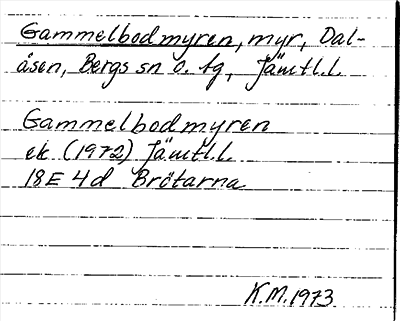 Gammelbodmyren, myr, Dal-
åsen, Bergs sn o. tg, Jämtl.l.
Gammelbodmyren
ek (1972) Jämtl.l.
18E 4d Brötarna
K.M.1973